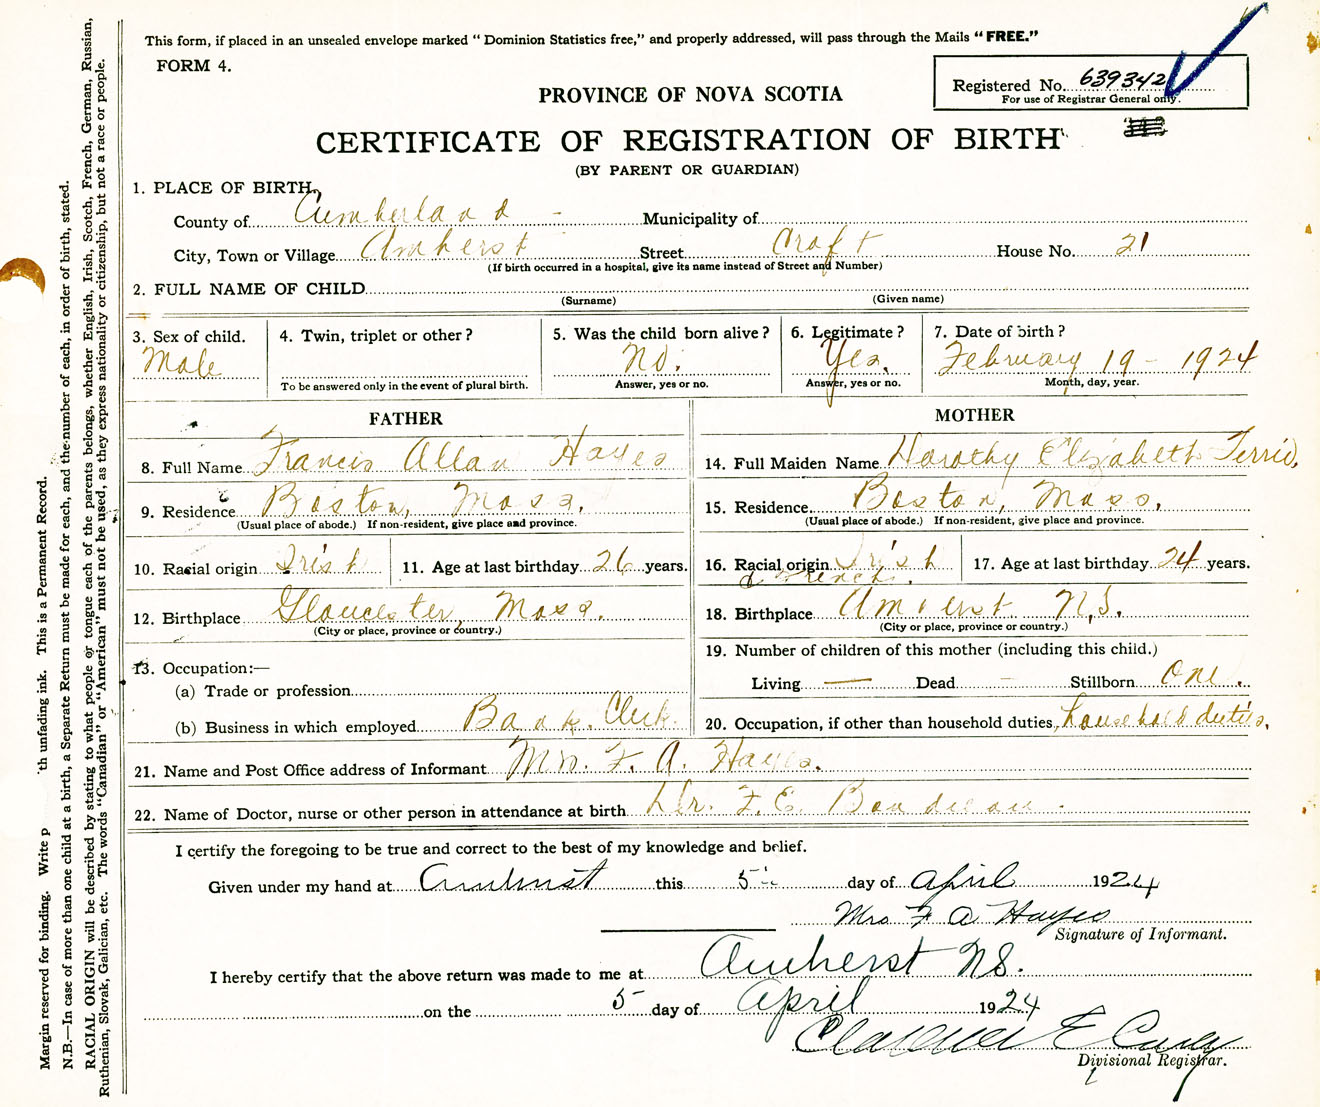 This form, if placed in an unsealed envelope marked "Dominion Statistics free," and properly addressed, will pass through the Mails "FREE."
FORM 4.
Registered No. 639342
For use of Registrar General only.
PROVINCE OF NOVA SCOTIA
CERTIFICATE OF REGISTRATION OF BIRTH
(BY PARENT OR GUARDIAN)
1. PLACE OF BIRTH,
County of Cumberland - Municipality of
City, Town or Village Amherst Street Croft House No. 21
(If birth occurred in a hospital, give its name instead of Street and Number)
2. FULL NAME OF CHILD
(Surname) (Given name)
3. Sex of child. 4. Twin, triplet or other? 5. Was the child born alive? 6. Legitimate? 7. Date of birth?
Male No. Yes. February 19 - 1924
To be answered only in the event of plural birth. Answer, yes or no. Answer, yes or no. Month, day, year.
FATHER
8. Full Name Francis Allan Hayes
9. Residence Boston, Mass.
(Usual place of abode.) If non-resident, give place and province.
10. Racial origin Irish 11. Age at last birthday 26 years.
12. Birthplace Gloucester, Mass.
(City or place, province or country.)
13. Occupation:—
(a) Trade or profession
(b) Business in which employed Bank Clerk.
MOTHER
14. Full Maiden Name Dorothy Elizabeth
15. Residence. Boston, Mass.
(Usual place of abode.) If non-resident, give place and province.
16. Racial origin Irish 17. Age at last birthday 24 years.
& French.
18. Birthplace Amherst N.S.
(City or place, province or country.)
19. Number of children of this mother (including this child.)
Living — Dead - Stillborn one.
20. Occupation, if other than household duties, household duties.
21. Name and Post Office address of Informant Mrs. F. A. Hayes.
22. Name of Doctor, nurse or other person in attendance at birth Dr. F. E. -
I certify the foregoing to be true and correct to the best of my knowledge and belief.
Given under my hand at Amherst this 5th day of April 1924
Mrs F A Hayes
Signature of Informant.
I hereby certify that the above return was made to me at Amherst NS.
on the 5 day of April 1924
Clarence E
Divisional Registrar.
Margin reserved for binding. Write th unfading ink. This is a Permanent Record.
N.B.—In case of more than one child at a birth, a Separate Return must be made for each, and the number of each, in order of birth, stated.
RACIAL ORIGIN will be described by stating to what people or tongue each of the parents belongs, whether English, Irish, Scotch, French, German, Russian,
Ruthenian, Slovak, Galician, etc. The words "Canadian" or "American" must not be used, as they express nationality or citizenship, but not a race or people.